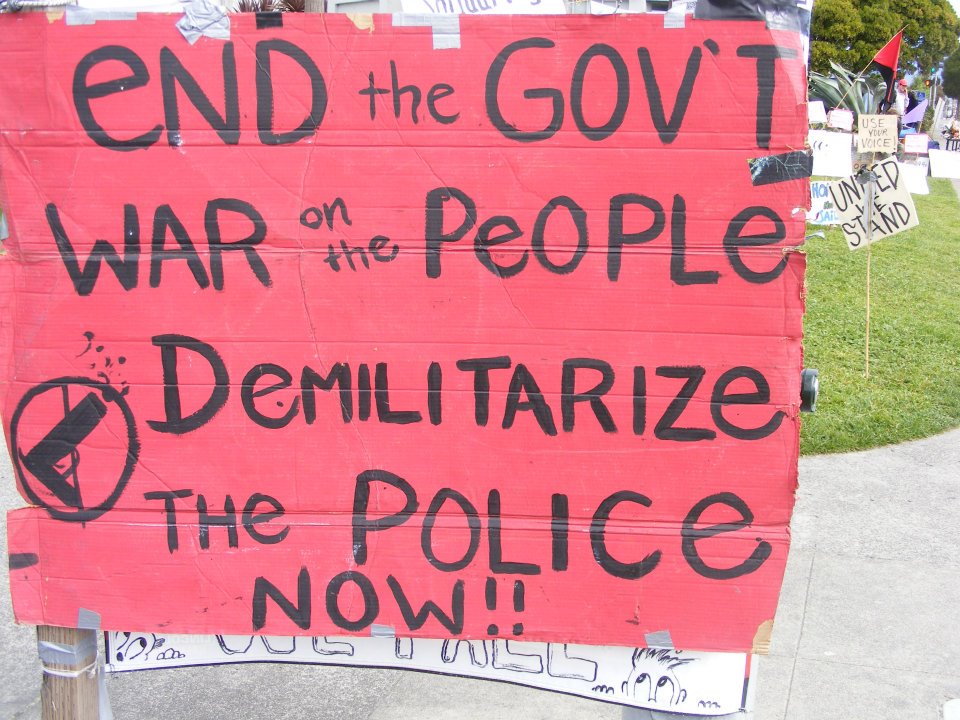 END the GOV'T
WAR on the PEOPLE
DEMILITARIZE
THE POLICE
NOW!!
USE
YOUR
VOICE!
UNITED
WE
STAND